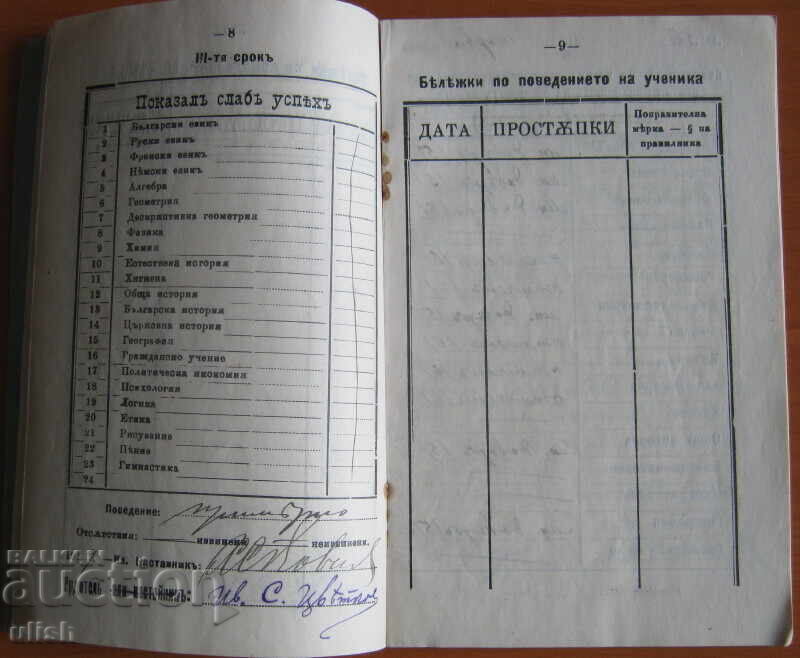 —8
III-тя срокъ
Показалъ слабъ успѣхъ
1 Български езикъ
2 Руски езикъ
3 Френски езикъ
4 Нѣмски езикъ
5 Алгебра
6 Геометрия
7 Дескриптивна геометрия
8 Физика
9 Химия
10 Естествена история
11 Хигиена
12 Обща история
13 Българска история
14 Църковна история
15 География
16 Гражданско учение
17 Политическа икономия
18 Психология
19 Логика
20 Етика
21 Рисувание
22 Пѣние
23 Гимнастика
24
Поведение: примѣрно
Отсѫтствия: извинени неизвинени.
Кл. Наставникъ:
Ив. С. Цвѣтков
—9—
Бѣлѣжки по поведението на ученика
ДАТА ПРОСТѪПКИ Поправителна мѣрка — § на правилника
BALKAN
auction
ulish